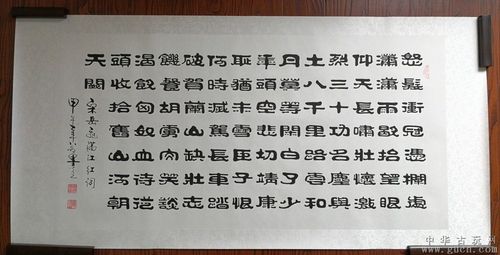 怒髮衝冠憑欄處
瀟瀟雨歇抬望眼
仰天長嘯壯懷激
烈三十功名塵與
土八千里路雲和
月莫等閒白了少
年頭空悲切靖康
恥猶未雪臣子恨
何時滅駕長車踏
破賀蘭山缺壯志
饑餐胡虜肉笑談
渴飲匈奴血待從
頭收拾舊山河朝
天闕
宋岳飛滿江紅詞
甲午年
中华古玩网
www.gucn.com